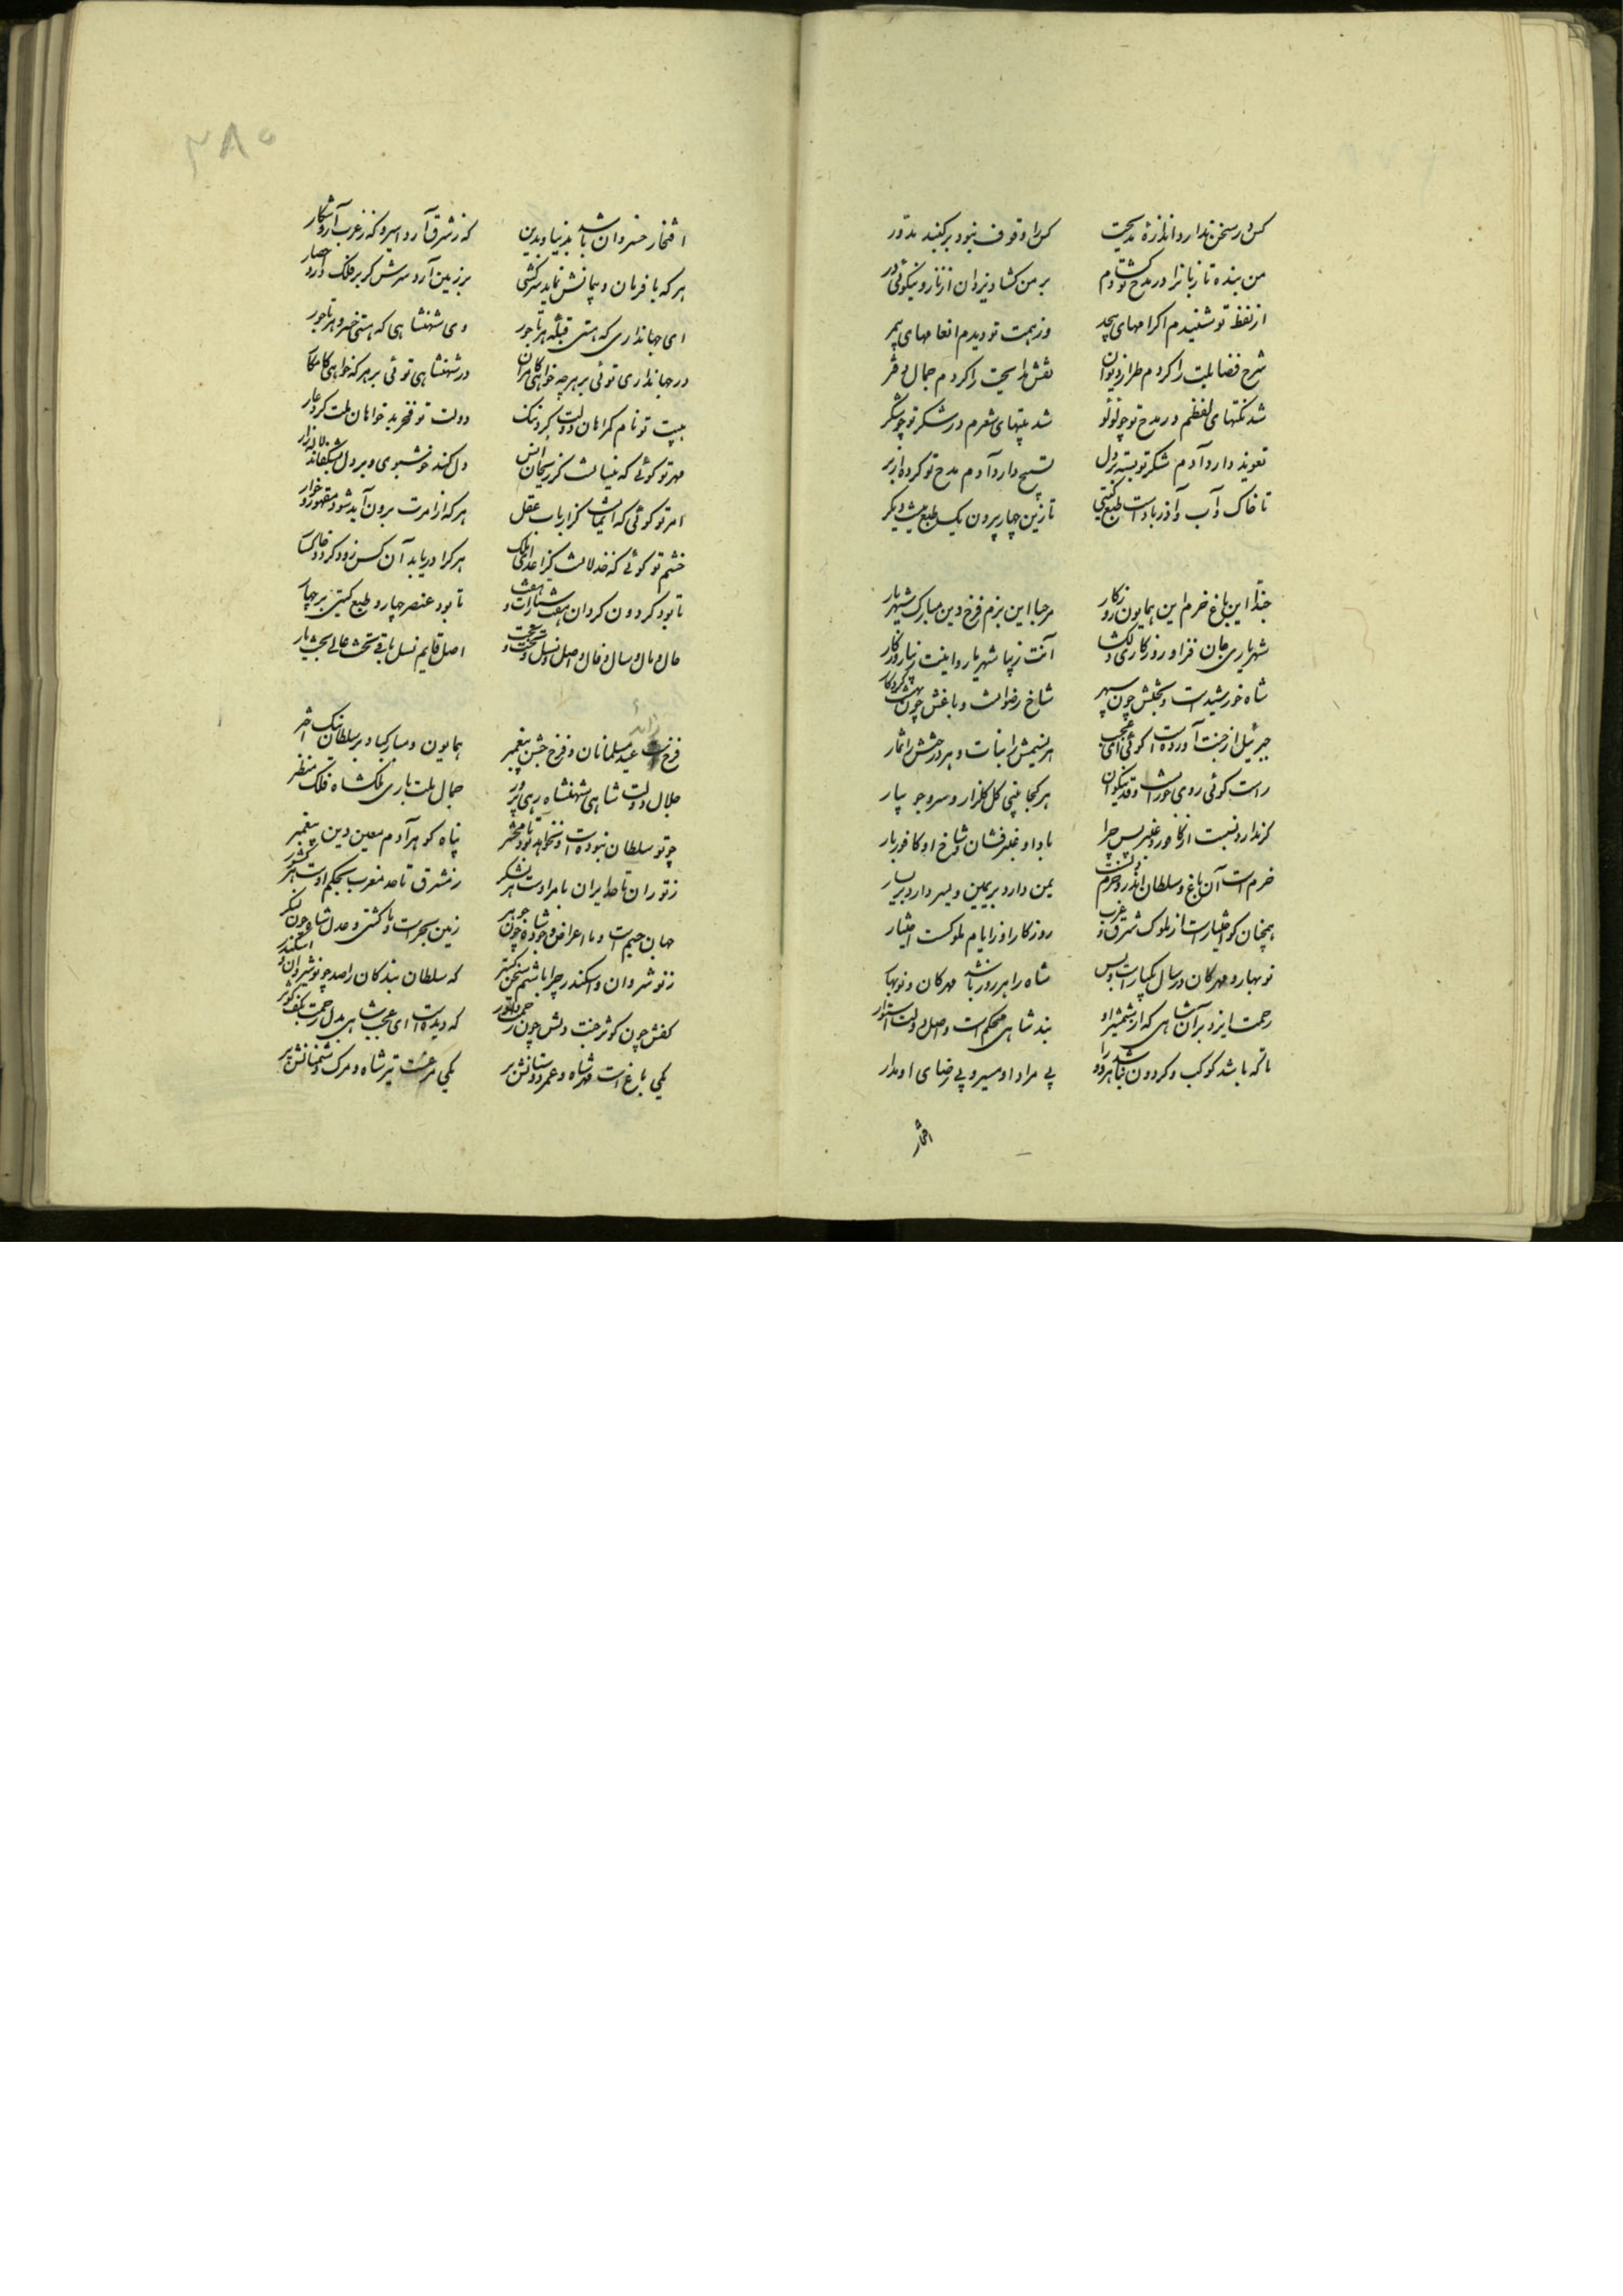 کس در سخن ندارد اندازهٔ مدیحت
کس را وقوف نبود بر گنبد مدور
من بنده تا زبانرا در مدح تو گشادم
بر من گشاد یزدان از ناز و نیکوئی در
از لفظ تو شنیدم اکرامهای بیحد
وز همت تو دیدم انعامهای بیمر
شرح فضایلت را کردم طراز دیوان
نقش مدایحت را کردم جمال دفتر
شد نکتهای لفظم در مدح تو چو لؤلؤ
شد بیتهای شعرم در شکر تو چو شکر
تعویذ دارد آدم شکر تو بسته بر دل
تسبیح دارد آدم مدح تو کرده از بر
تا خاک و آب و آذر با دست طبع گیتی
تا زین چهار بیرون یک طبع نیست دیگر
حبذا این باغ خرم این همایون روزگار
مرحبا این بزم فرخ وین مبارک شهریار
شهریاری جان فزا و روزگاری دلگشا
آنت زیبا شهریار و اینت زیبا روزگار
شاه خورشیدست و تختش چون سپهر
شاخ رضوانست و باغش چون بهشت کردگار
جبرئیل از جنت آوردست گوئی ای عجب
هر نسیمش را نبات و هر درختش را ثمار
راست گوئی روی حورانست و قد نیکوان
هر کجا بینی گل گلزار و سرو جویبار
گر ندارد نسبت از کافور و عنبر پس چرا
باد او عنبر فشان و شاخ او کافور بار
خرمست آن باغ و سلطان اندرو خرم نشست
یمن دارد بر یمین و یسر دارد بر یسار
همچنان کو اختیارست از ملوک شرق و غرب
روزگار او ز ایام ملوکست اختیار
نوبهار و مهرگان در سال یکبارست و بس
شاه را هر روز باشد مهرگان و نوبهار
رحمت ایزد بر آن شاهی که از شمشیر او
بند شاهی محکمست و اصل دولت استوار
تا که باشد کوکب و گردون نباشد هر دو را
بی مراد او مسیر و بی رضای او مدار
افتخار
۲۸۵
افتخار خسروان باشد بدنیا و بدین
که ز شرق آرد اسیر و که ز غرب آرد شکار
هر که با فرمان و پیمانش نماید سرکشی
بر زمین آرد سرش گر بر فلک دارد حصار
ای جهانداری که هستی قبلهٔ هر تاجور
وی شهنشاهی که هستی خسرو هر تاجور
در جهانداری توئی بر هر چه خواهی کامران
در شهنشاهی توئی بر هر که خواهی کامکار
هیبت تو نام گمراهان دولت کرد ننگ
دولت تو فخر بدخواهان ملت کرد عار
مهر تو گوئی که نیسانست کز ریحان انس
دل کند خوشبوی و بر دل بشکفاند لاله زار
امر تو گوئی که ایمانست کز ارباب عقل
هر که از امرت برون آید شود مقهور و خوار
خشم تو گوئی که خذلانست کز اعدای ملک
هر کرا دریابد آن کس زود گردد خاکسار
تا بود گردون گردان هفت و سیارات هفت
تا بود عنصر چهار و طبع گیتی بر چهار
حال و مال و سال و فال و اصل و نسل و تخت و بخت
اصل قایم نسل باقی تخت عالی بخت یار
زاید
فرخست عید مسلمانان و فرخ جشن پیغمبر
همایون و مبارک باد بر سلطان نیک اختر
جلال دولت شاهی شهنشاه رهی پرور
جمال ملت باری ملکشاه فلک منظر
چو تو سلطان نبودست و نخواهد بود تا محشر
پناه گوهر آدم معین دین پیغمبر
ز توران تا حد ایران بامر اوست هر لشکر
ز مشرق تا حد مغرب بحکم اوست هر کشور
جهان جسم است و ما اعراض و جود شاه چون جوهر
زمین بحر است و ما کشتی و عدل شاه چون لنگر
ز نوشروان و اسکندر چرا باشم سخن گستر
که سلطان بندگان را صد چو نوشروان و اسکندر
کفش چون کوثر جنت دلش چون رحمت داور
که دیدست ای عجب شاهی بدل رحمت بکف کوثر
یکی باغ است مهر شاه و عمر دوستانش بر
یکی مرغست تیر شاه و مرگ دشمنانش پر